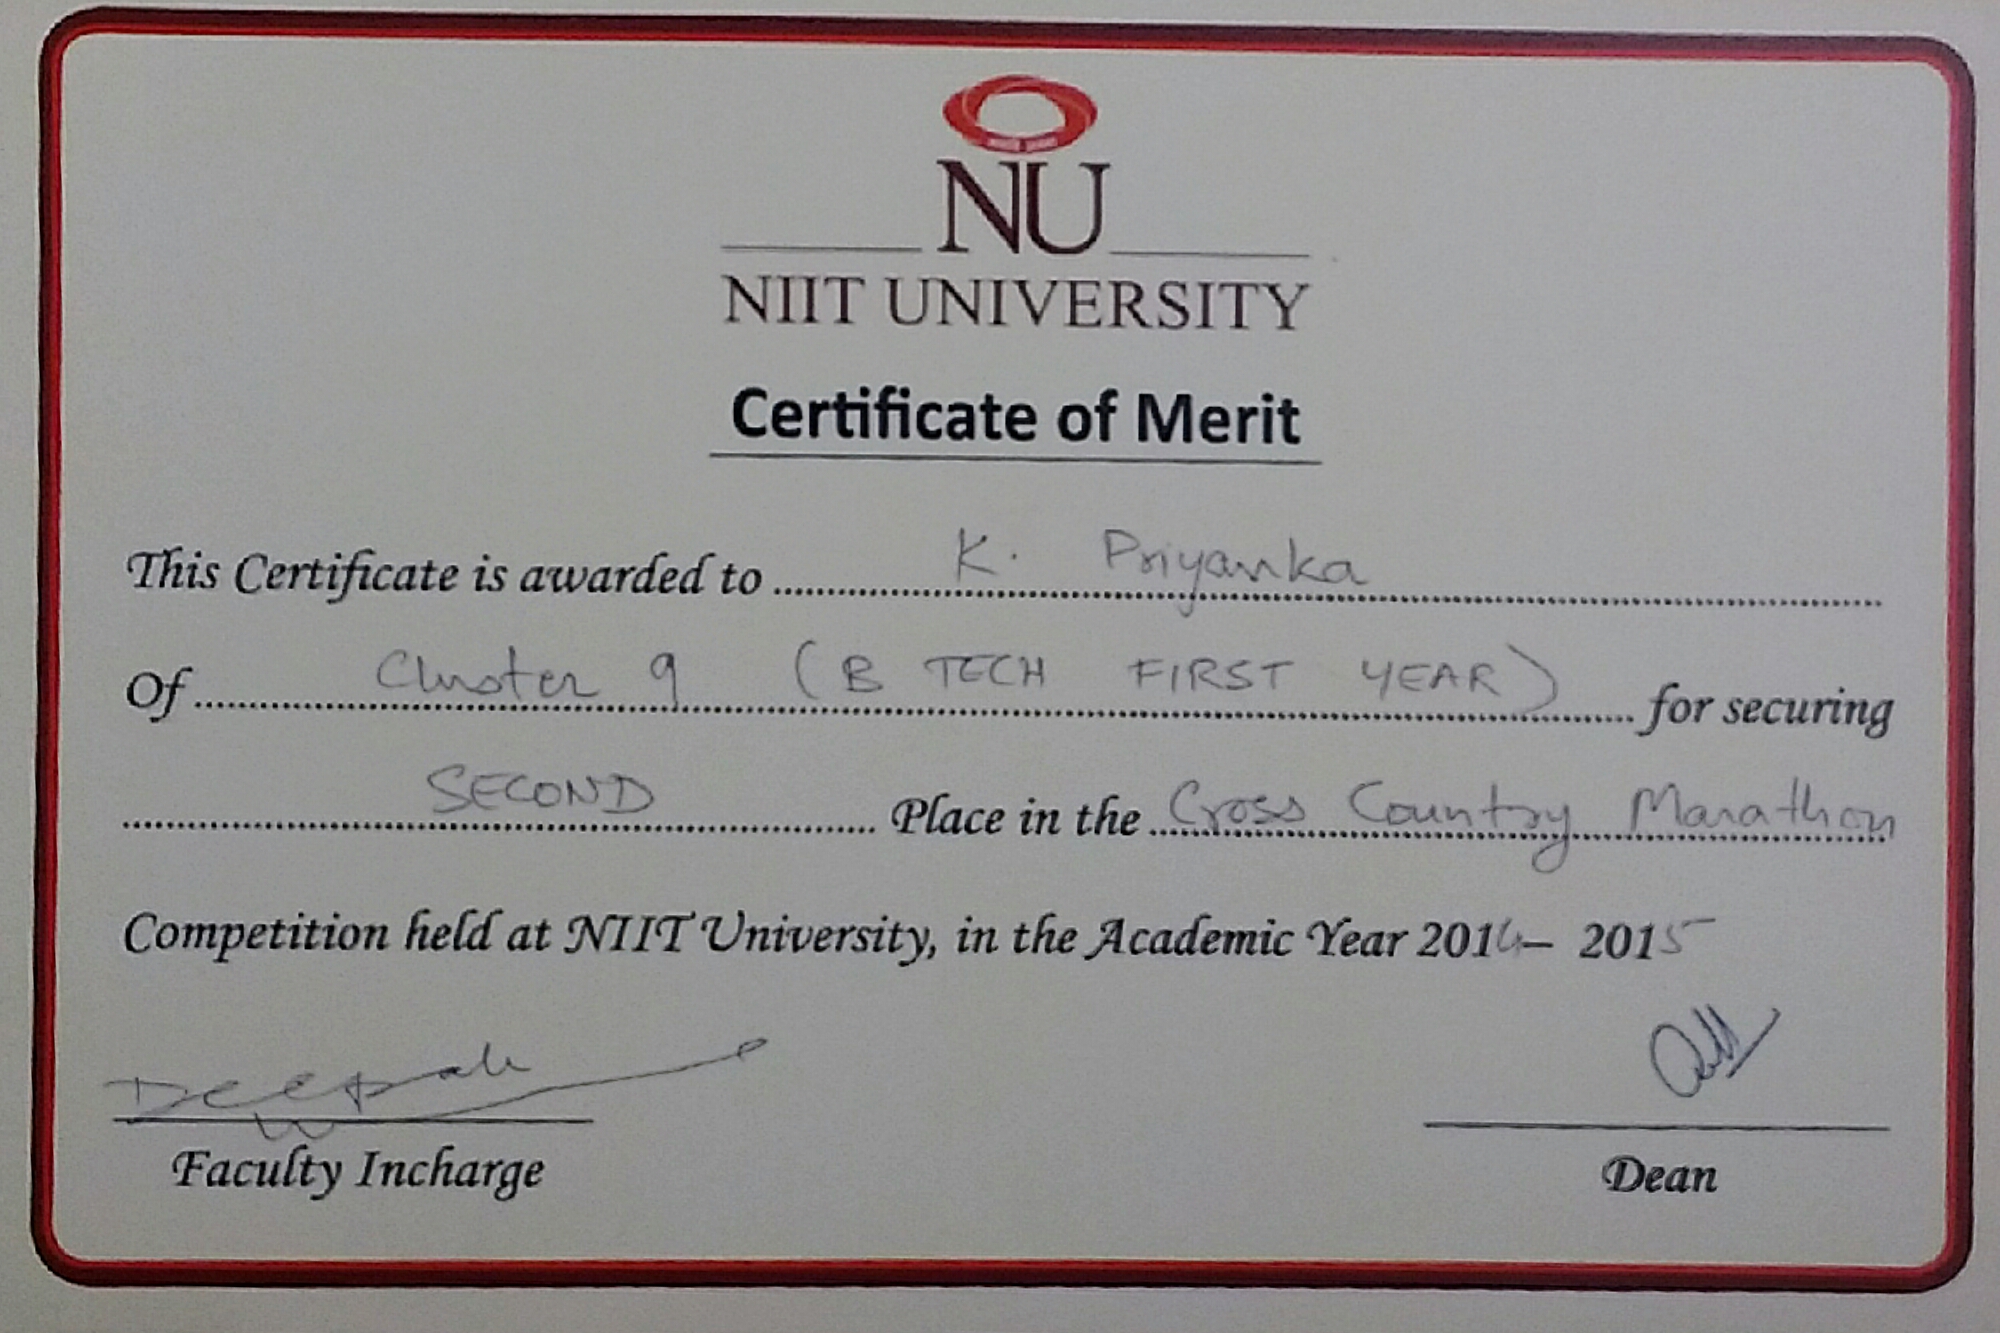 NU
NIIT UNIVERSITY
Certificate of Merit
This Certificate is awarded to K. Priyanka
Of Cluster 9 (B TECH FIRST YEAR) for securing
SECOND Place in the Cross Country Marathon
Competition held at NIIT University, in the Academic Year 2014– 2015
Deepak
Faculty Incharge
Dean